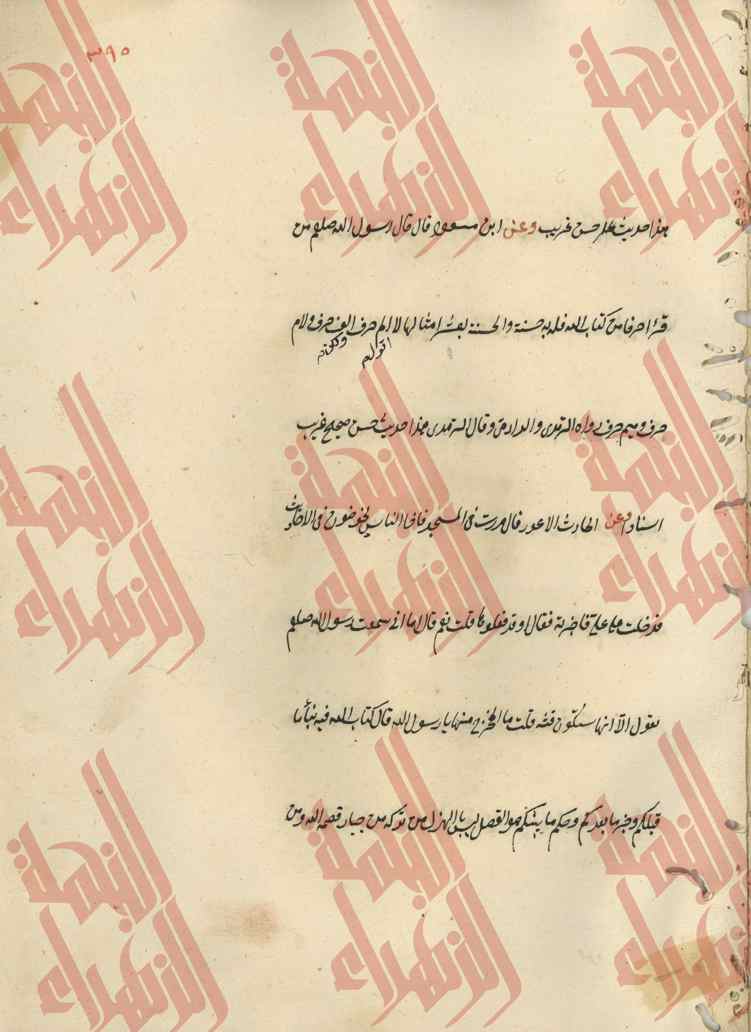 ٣٩٥
هذا حديث حسن غريب وعن ابن مسعود قال قال رسول الله صلعم من
قرأ حرفا من كتاب الله فله به حسنة والحسنة بعشر امثالها لا الم حرف الف حرف ولام
اقول
حرف وميم حرف رواه الترمذى والدارمى وقال الترمذى هذا حديث حسن صحيح غريب
اسنادا وعن الحارث الاعور قال مررت فى المسجد فاذا الناس يخوضون فى الاحاديث
فدخلت على على فاخبرته فقال او قد فعلوها قلت نعم قال اما انى سمعت رسول الله صلعم
يقول الا انها ستكون فتنة قلت ما المخرج منها يا رسول الله قال كتاب الله فيه نبأ ما
قبلكم وخبر ما بعدكم وحكم ما بينكم هو الفصل ليس بالهزل من تركه من جبار قصمه الله ومن
النهضة
الزهراء